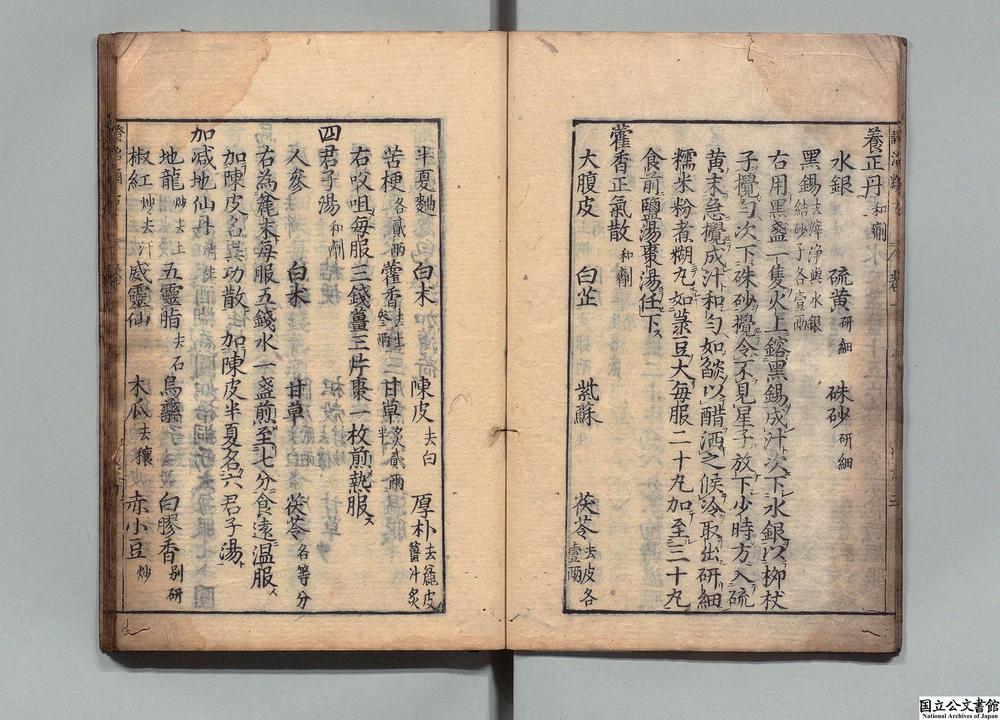 養正丹和劑
水銀 硫黄研細 硃砂研細
黑錫去滓浄與水銀結砂子各壹兩
右用黑盞一隻火上鎔黑錫成汁次下水銀以柳杖
子攪勻次下硃砂攪令不見星子放下少時方入硫
黄末急攪成汁和勻如燄以醋洒之候冷取出研細
糯米粉煮糊丸如菉豆大每服二十九加至三十丸
食前鹽湯棗湯任下
藿香正氣散和劑
大腹皮 白芷 紫蘇 茯苓去皮各壹兩
半夏麯 白朮 陳皮去白 厚朴去麄皮薑汁炙
苦梗各貳兩 藿香去土叄兩 甘草炙貳兩半
右㕮咀每服三錢薑三片棗一枚煎熱服
四君子湯和劑
人參 白朮 甘草 茯苓各等分
右為麄末每服五錢水一盞煎至七分食遠温服
加陳皮名異功散 加陳皮半夏名六君子湯
加減地仙丹
地龍炒去土 五靈脂去石 烏藥 白膠香別研
椒紅炒去汗 威靈仙 木瓜去穰 赤小豆炒
国立公文書館
National Archives of Japan